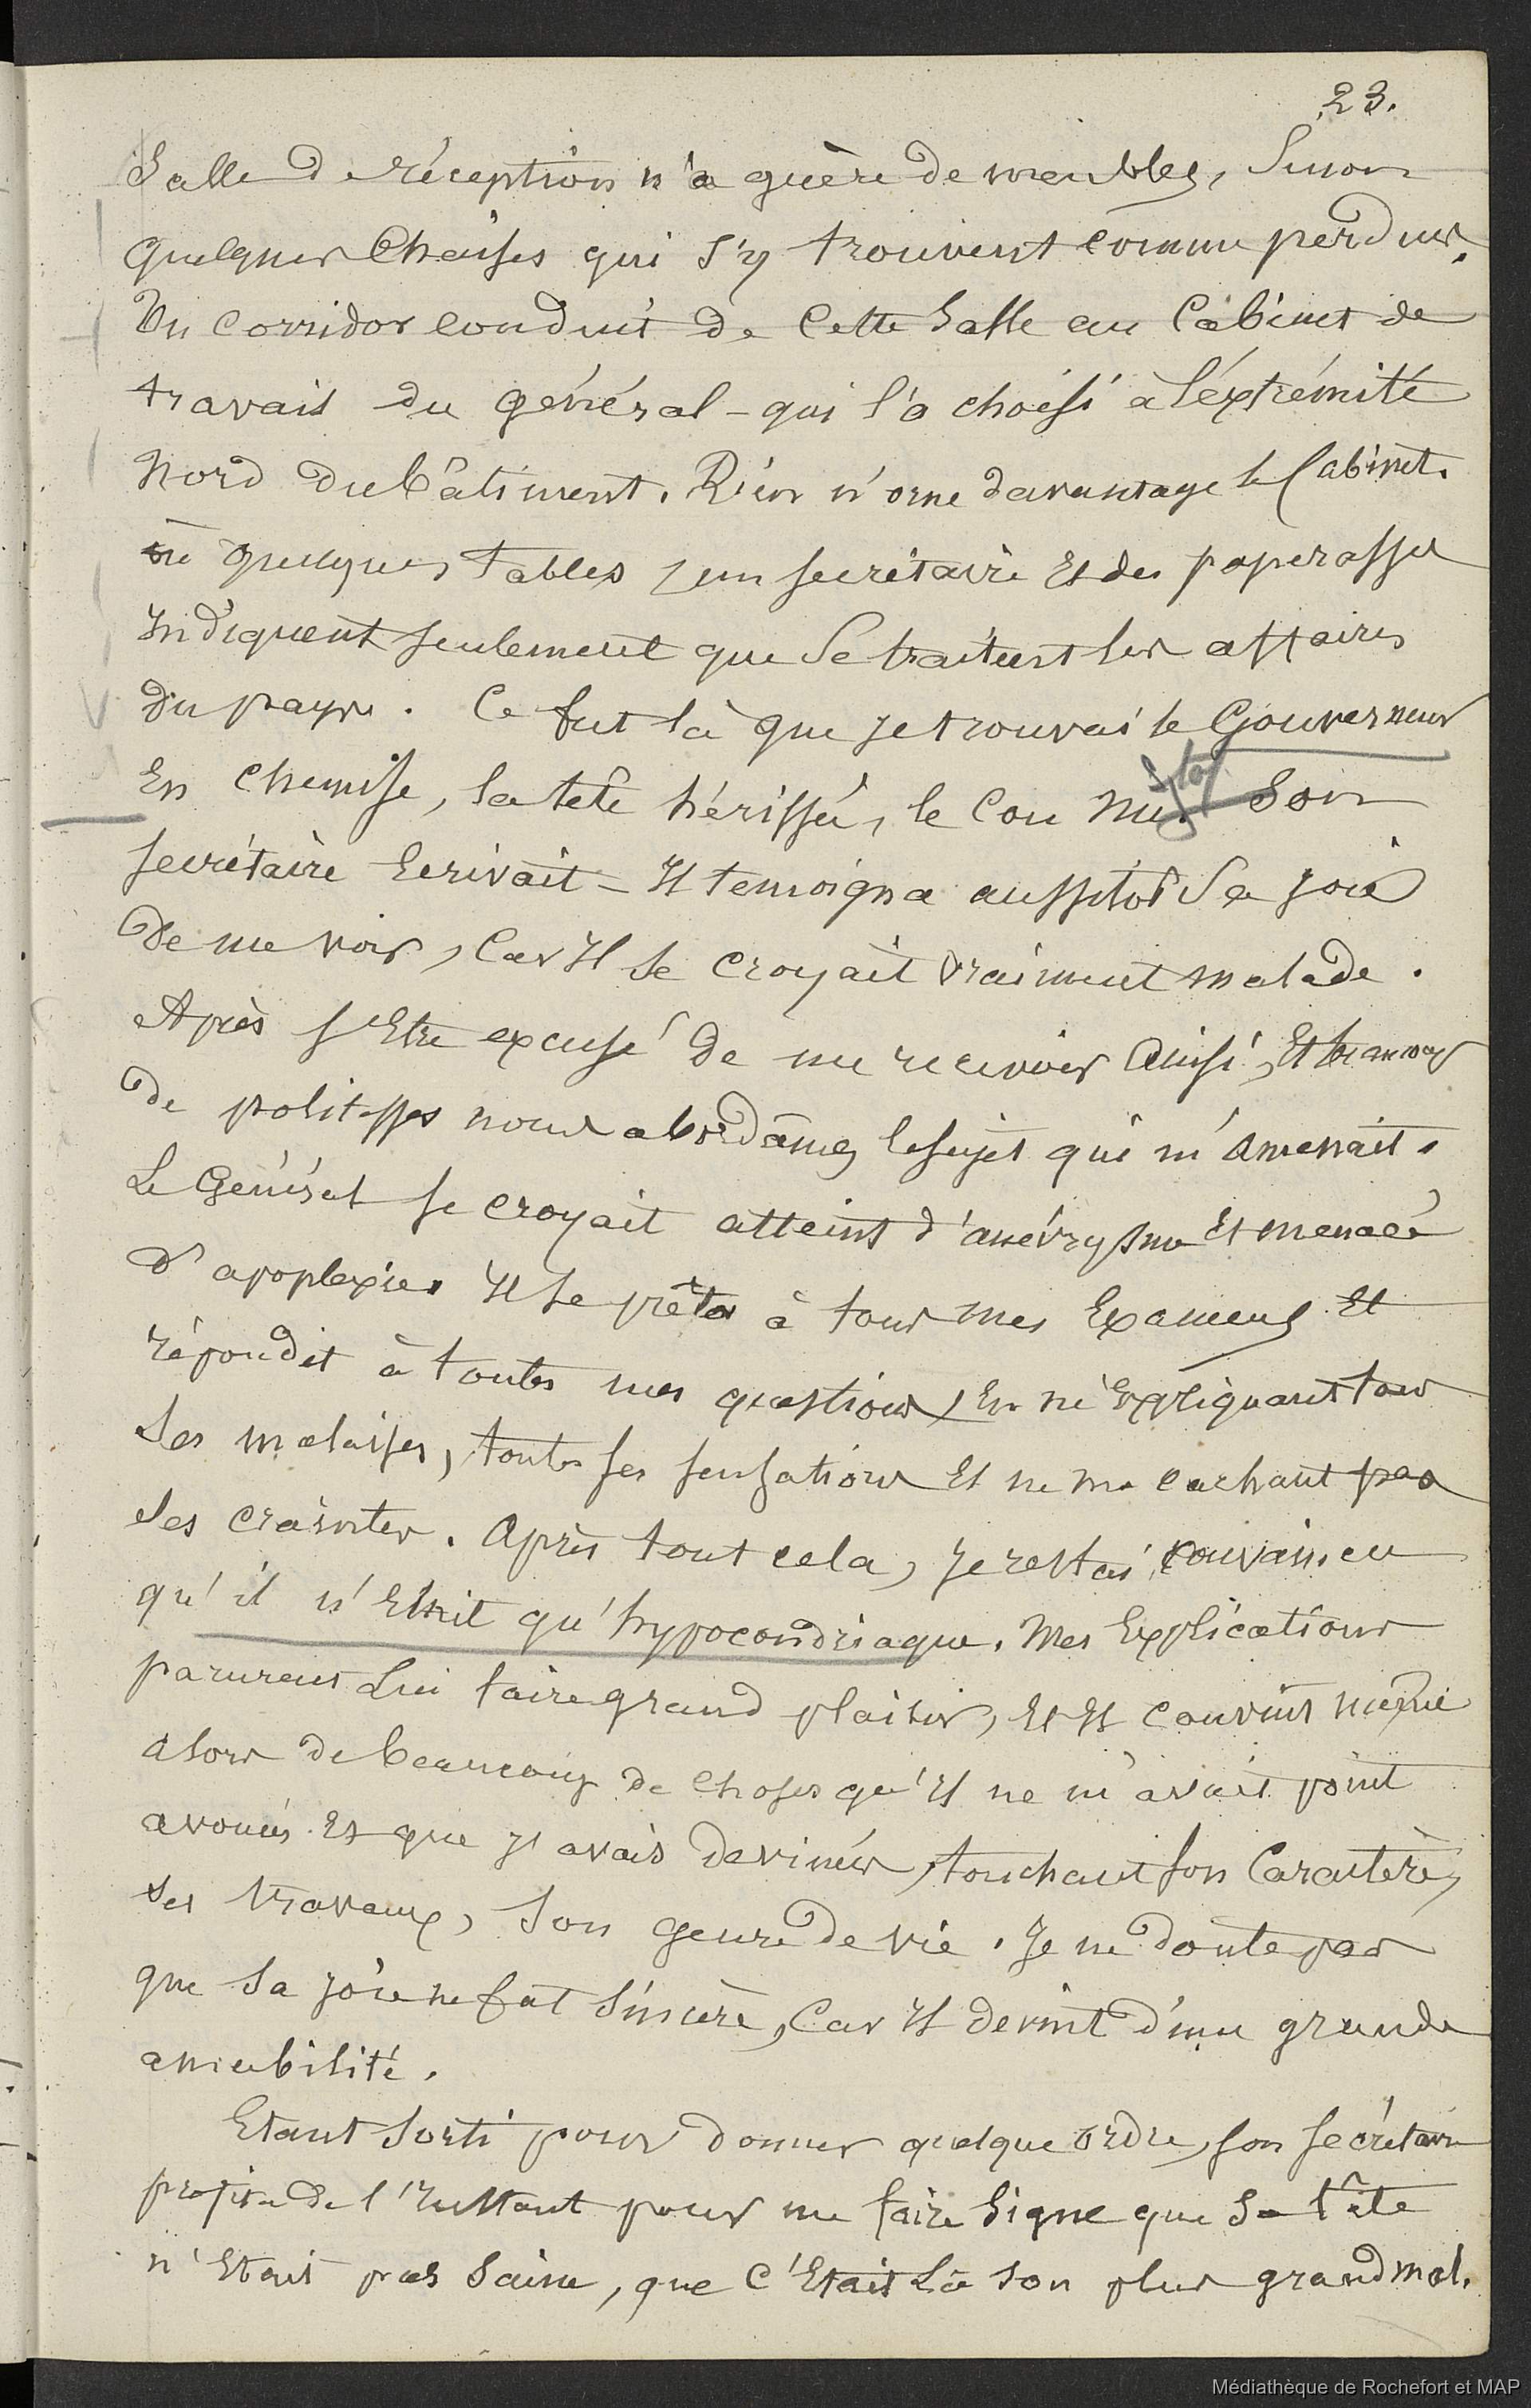 23.
Salle de réception n'a guère de meubles, Sinon
quelques Chaises qui s'y trouvent comme perdues.
Un corridor conduit de Cette Salle au Cabinet de
travail du général - qui l'a choisi à l'éxtrémité
Nord du bâtiment. Rien n'orne davantage le Cabinet.
où quelques tables, un secrétaire Et des paperasses
Indiquent seulement que Se traitent les affaires
du pays. Ce fut là que je trouvai le Gouverneur
En Chemise, la tête hérissée, le Cou nu. Son
secrétaire Ecrivait - Il temoigna aussitôt Sa joie
de me voir, Car Il se croyait vraiment malade.
Après s'Etre excusé de me recevoir Ainsi, Et beaucoup
de politesses nous abordâmes le sujet qui m'Amenait.
Le Général se croyait atteint d'anévrysme Et menacé
d'apoplexie. Il se prêta à tous mes Examens Et
répondit à toutes mes questions, En m'Expliquant tous
Ses malaises, toutes ses sensations Et ne me cachant pas
Ses craintes. Après tout cela, je restai convaincu
qu'il n'Etait qu'hypocondriaque. Mes Explications
parurent Lui faire grand plaisir, Et Il convint même
alors de beaucoup de Choses qu'Il ne m'avait point
avouées Et que j'avais devinées, touchant son Caractère,
Ses travaux, Son genre de vie. Je ne doute pas
que Sa joie ne fut Sincère, Car Il devint d'une grande
amabilité.
Etant Sorti pour donner quelque ordre, son Secrétaire
profita de l'Instant pour me faire Signe que Sa tête
n'Etait pas Saine, que C'Etait Là Son plus grand mal.
Médiathèque de Rochefort et MAP